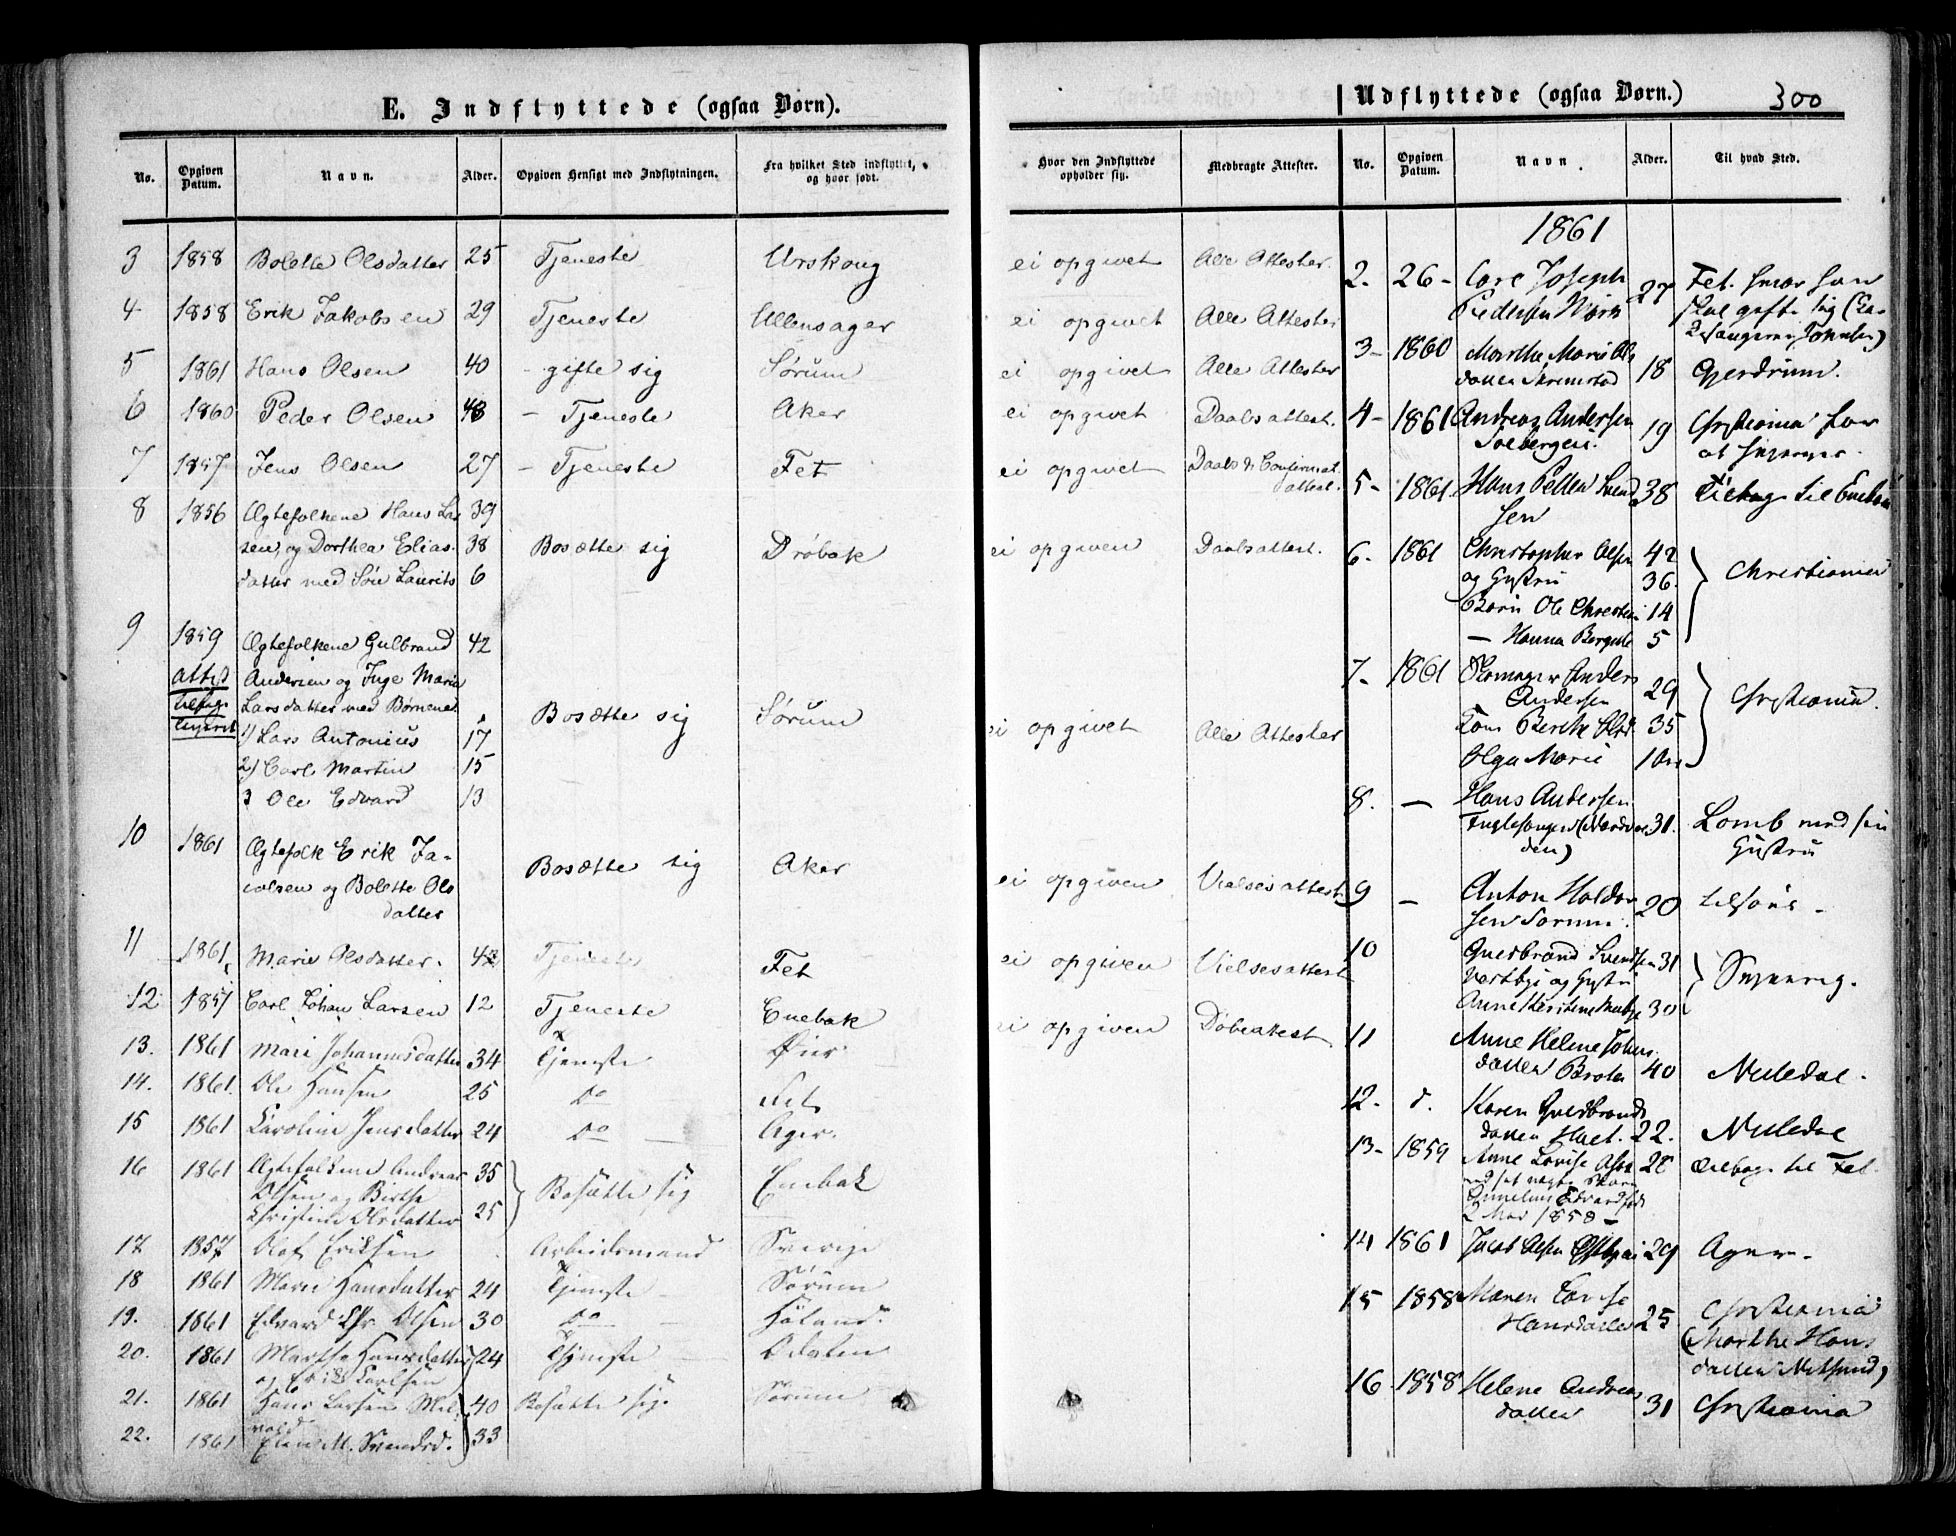 E. Indflyttede (ogsaa Børn).
No. Opgiven Datum. Navn. Alder. Opgiven Hensigt med Indflytningen. Fra hvilket Sted indflyttet, og hvor født.
3 1858 Bolette Olsdatter 25 Tjeneste Urskoug
4 1858 Erik Jakobsen 29 Tjeneste Ullensager
5 1861 Hans Olsen 40 - gifte sig Sørum
6 1860 Peder Olsen 48 - Tjeneste Aker
7 1857 Jens Olsen 27 - Tjeneste Fet
8 1856 Ægtefolkene Hans Lar 39
sen, og Dorthea Elias- 38 Bosætte sig Drøbak
datter med Søn Laurits 6
9 1859 Ægtefolkene Gulbrand 42
Andersen og Inge Maria
Larsdatter med Børnene
Bosætte sig Sørum
1) Lars Antonius 17
2) Carl Martin 15
3 Ole Edvard 13
10 1861 Ægtefolk Erik Ja-
cobsen og Bolette Ols
datter
Bosætte sig Aker
11 1861 Marie Olsdatter. 42 Tjeneste Fet
12 1857 Carl Johan Larsen 12 Tjeneste Enebak
13. 1861 Mari Johannesdatter 34 Tjeneste
14. 1861. Ole Hansen 25 do Fet
15 1861 Karoline Jensdatter 24 do Ager.
16 1861 Ægtefolkene Andreas 35
Olsen og Birthe Bosætte sig Enebak
Christine Olsdatter 25
17 1857 Olof Eriksen Arbeidsmand Sverige
18 1861 Maren Hansdatter 24 Tjeneste Sørum
19. 1861 Edvard Chr. Olsen 30 do Høland.
20. 1861 Marthe Hansdatter 24 Tjeneste Odalen
og Erik Carlsen
21. 1861 Hans Larsen 40 Bosætte sig. Sørum
22. 1861 Elen M. Svendsd. 33
Hvor den Indflyttede opholder sig. Medbragte Attester.
ei opgivet Alle Attester.
ei opgivet Alle Attester
ei opgivet Alle Attester
ei opgivet Daabsattest.
ei opgivet Daabs & Confirmat.
attest.
ei opgiven Daabsattest.
ei opgivet Alle Attester
ei opgiven Vielsesattest
ei opgiven Vielsesattest
ei opgiven Døbeattest
Udflyttede (ogsaa Børn.) 300
No. Opgiven Datum. Navn. Alder. Til hvad Sted.
1861
2. 26- Carl Joseph 27 Fet. hvor han
Pedersen skal gifte sig
3- 1860 Marthe Marie Ols
datter 18 Gjerdrum.
4- 1861 Andreas Andersen 19 Christiania
Solbergeie.
5- 1861. Hans Petter Svend 38 Tilbage til Enebak
sen
6- 1861 Christopher Olsen 42
og Hustru 36. Christiania
Børn Ole Christian 14
- Hanna 5
7- 1861 Skomager Anders 29
Andersen Christiania.
Kone Berthe Olsd. 35
Olga Marie
8. - Hans Andersen
31. Lomb med sin
Hustru
9 - Anton Haldor 20 tilsøes -
sen Sørum
10 Guldbrand Svendsen 31
og Hustru
Anne 30
11 Anne Helene
datter Braaten 40 Nittedal.
12. d. Karen Guldbrands
datter 22. Nittedal
13- 1859 Anne Lovise 28 tilbage til Fet.
2 Mai 1858 -
14 1861 Jacob Olsen 29 Ager.
15 1858 Maren Lovise
Hansdatter 25 Christiania
(Marthe Hans
datter Nitsund)
16. 1858 Helene Andreas
datter 31 Christiania